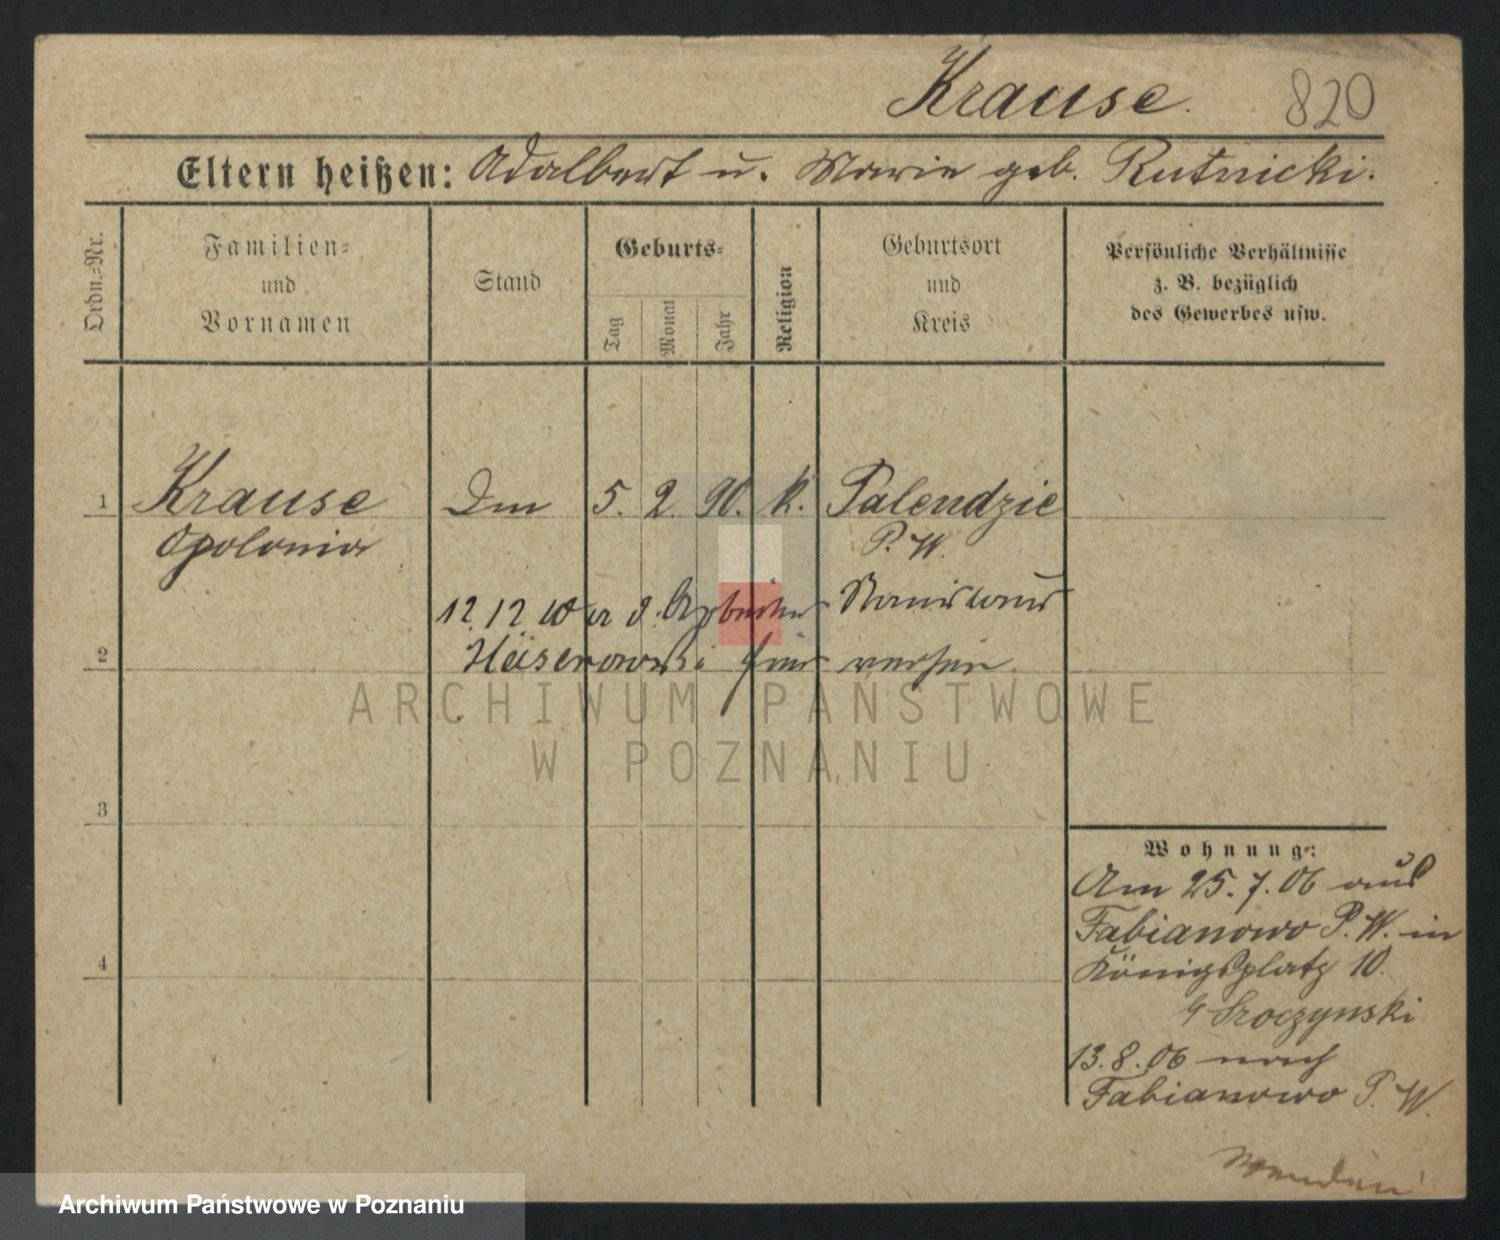 Krause. 820
Eltern heißen: Adalbert u. Marie geb. Rutnicki.
Ordn.=Nr.
Familien=
und
Vornamen
Stand
Geburts=
Tag
Monat
Jahr
Religion
Geburtsort
und
Kreis
Persönliche Verhältnisse
z. B. bezüglich
des Gewerbes usw.
1 Krause 5. 2. 90. k. Palendzie
Apolonia P. W.
12. 12 d. Arbeiter Stanislaus
2
3
4
Wohnung:
Am 25. 7. 06 aus
Fabianowo P. W. in
Königsplatz 10.
Sroczynski
13. 8. 06 nach
Fabianowo P. W.
ARCHIWUM PAŃSTWOWE
W POZNANIU
Archiwum Państwowe w Poznaniu